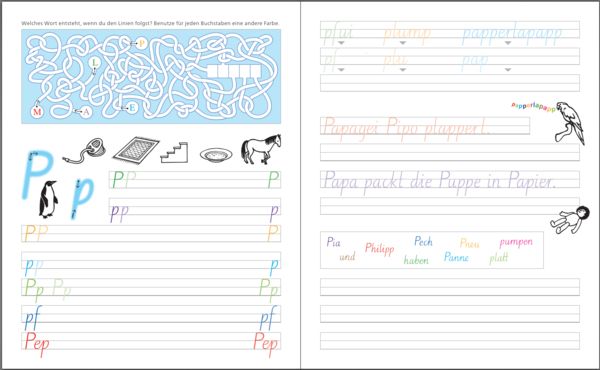 Welches Wort entsteht, wenn du den Linien folgst? Benutze für jeden Buchstaben eine andere Farbe.
P
L
M A E
P
p
P P P
p p p
P P P
p p p
Pp Pp Pp
pf pf
Pep Pep
pfui plump papperlapapp
pf plu pap
papperlapapp
Papagei Pipo plappert.
Papa packt die Puppe in Papier.
Pia Philipp Pech Pneu pumpen
und haben Panne platt